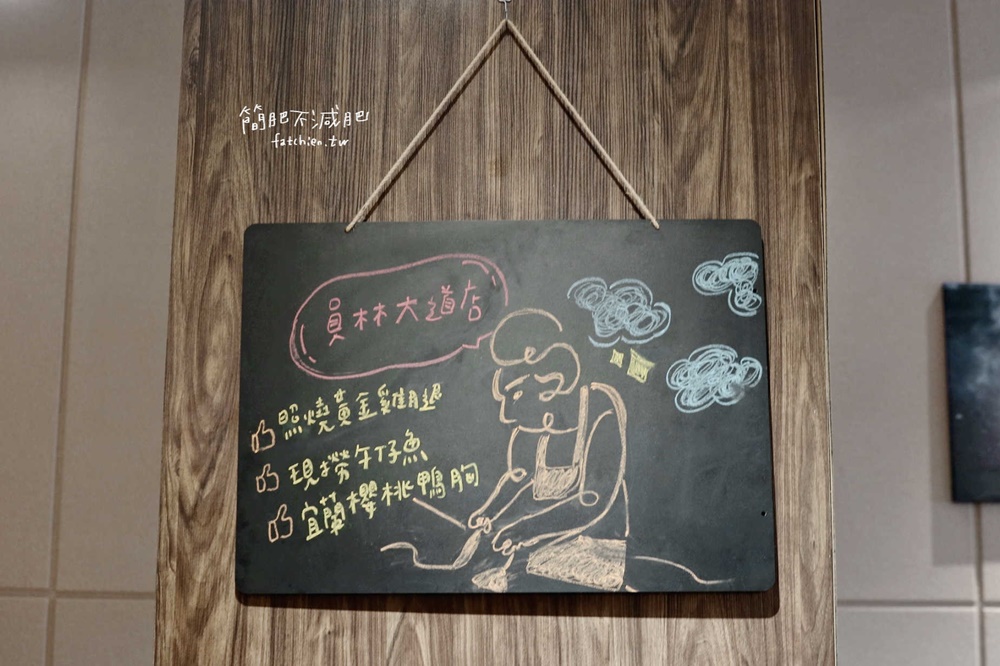 簡肥不減肥
fatchien.tw
員林大道店
照燒黃金雞腿
現撈午仔魚
宜蘭櫻桃鴨胸